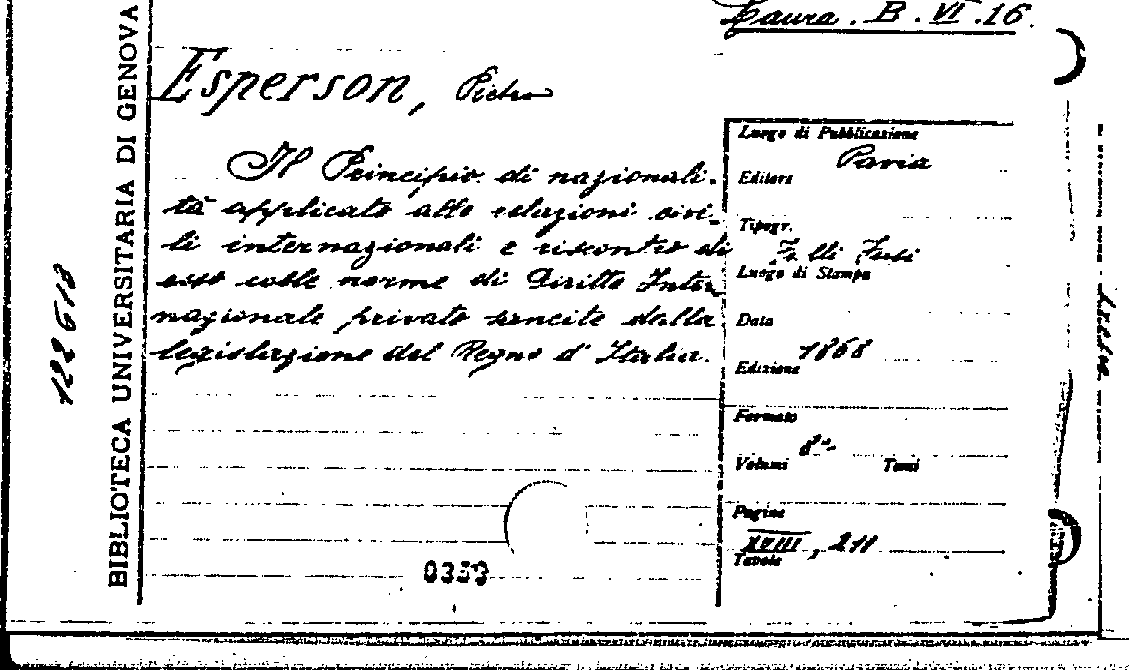 Laura. B. VI. 16.
BIBLIOTECA UNIVERSITARIA DI GENOVA
122618
Esperson, Pietro
Il Principio di nazionali-
tà applicato alle relazioni civi-
li internazionali e riscontro di
esso colle norme di Diritto Inter
nazionale privato sancite dalla
legislazione del Regno d'Italia.
Luogo di Pubblicazione
Pavia
Editore
Tipogr.
F.lli Fusi
Luogo di Stampa
Data
1868
Edizione
Formato
8°
Volumi Tomi
Pagine
XVIII, 211
Tavole
0359